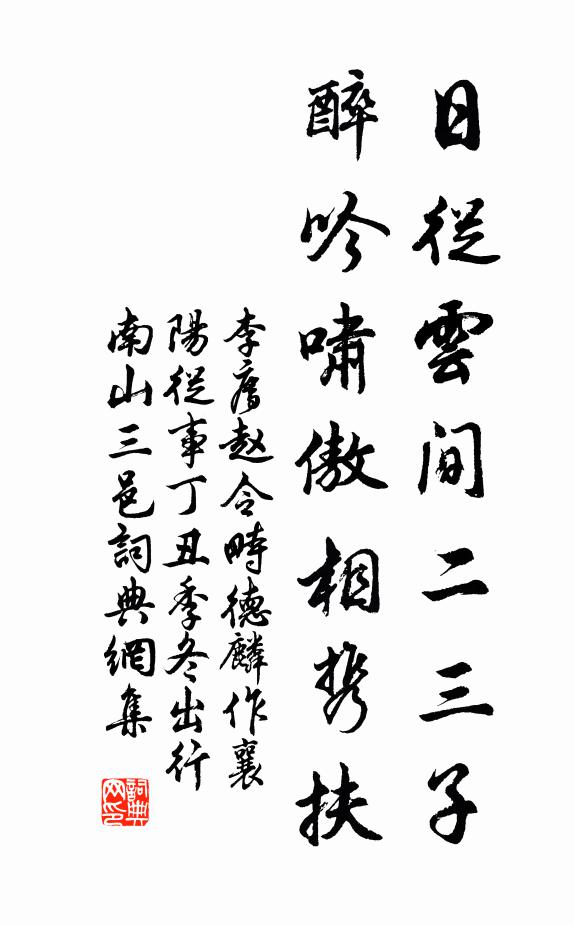 日從雲間二三子
醉吟嘯傲相携扶
李廌赵令畤德麟作襄
陽從事丁丑季冬出行
南山三邑詞典網集
詞典
网印